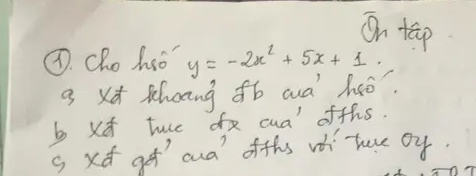 Ôn tập.
① Cho hsố y = -2x² + 5x + 1.
a, Xđ khoảng đb của hsố.
b, Xđ trục đx của đths.
c, Xđ gđ của đths với trục Oy.